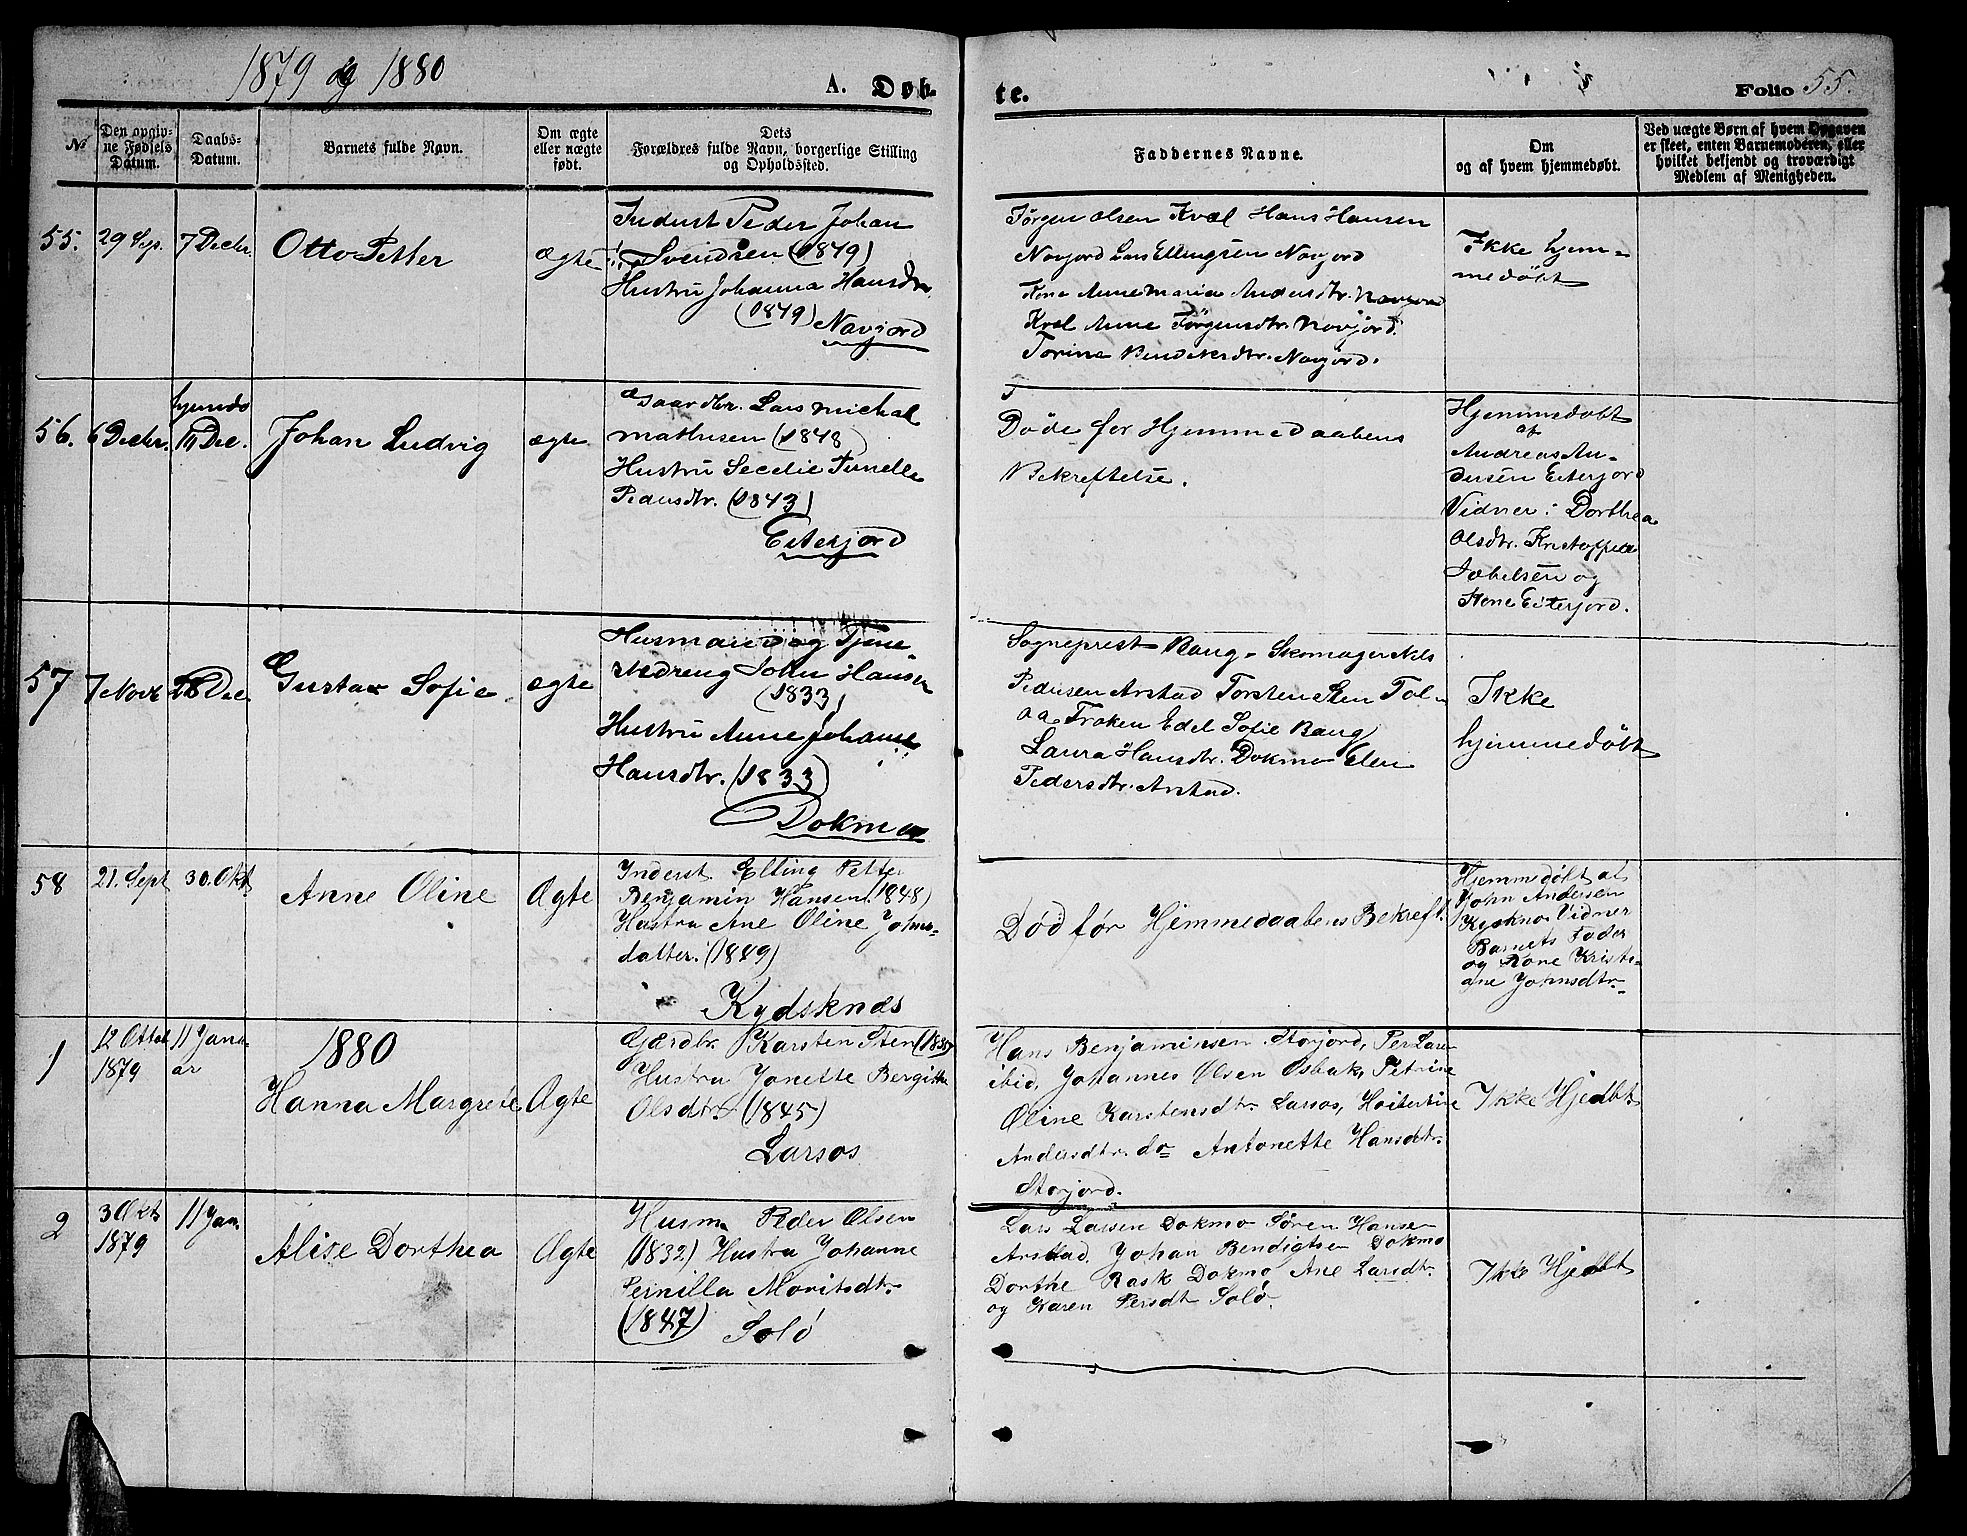 1879 og 1880
A. Døb-
te.
Folio 55.
No
Den opgiv-
ne Fødsels
Datum.
Daabs-
Datum.
Barnets fulde Navn.
Om ægte
eller uægte
født.
Dets
Forældres fulde Navn, borgerlige Stilling
og Opholdssted.
Faddernes Navne.
Om
og af hvem hjemmedøbt.
Ved uægte Børn af hvem Opgaven
er skeet, enten Barnemoderen, eller
hvilket bekjendt og troværdigt
Medlem af Menigheden.
55.
29 Sep.
7 Decbr.
Otto Petter
Ægte
Inderst Peder Johan
Svendsen (1849)
Hustru Johanna Hansdtr.
(1849) Navjord
Jørgen Olsen Kvæl Hans Hansen
Navjord Lars Ellingsen Navjord
Kone Anne Maria Andersdtr. Navjord
Kvel Anne Jørgensdtr. Navjord.
Torine Bendiksdtr. Navjord.
Ikke hjem-
medøbt
56.
6 Decbr.
11 Dec.
Johan Ludvig
ægte
Gaardbr. Lars Michal
Mathisen (1848)
Hustru Secelie
Pedersdtr. (1843)
Eiterjord
Døde før Hjemmedaabens
Bekreftelse.
Hjemmedøbt
af
Andreas An-
dersen Eiterjord
Vidner: Dorthea
Olsdtr. Kristoffer
og
Kone Eiterjord.
57
7 Novb
28 Dec
Gustav Sofie
ægte
Husmand og Tjene-
stedreng John Hansen
(1833)
Hustru Anne Johanne
Hansdtr. (1833)
Dokmo
Sogneprest Bang - Skomager Nils
Pedersen Arstad Torsten Sten Tol-
aa Frøken Edel Sofie Bang
Laura Hansdtr. Dokmo Elen
Pedersdtr. Arstad.
Ikke
hjemmedøbt
58
21. Sept
30. Okt
Anne Oline
Ægte
Inderst Elling Petter
Benjamin Hansen (1848)
Hustru Ane Oline Johns-
datter. (1849)
Kydsknæs
Død før Hjemmedaabens Bekreft.
Hjemmedøbt af
John Andersen
Vidner
Barnets Fader
og Kone Kristi-
ane Johnsdtr.
1
12 Oktob
1879
11 Janu-
ar
1880
Hanna Margrete
Ægte
Gardbr. Karsten Sten
Hustru Jonette Bergitte
Olsdtr. (1845)
Larsos
Hans Benjaminsen Storjord, Per Larsen
ibid, Johannes Olsen Osbak, Petrine
Oline Karstensdtr. Larsos,
Andersdtr. do Antonette Hansdtr.
Storjord.
Ikke Hjedbt
2
3 Okt
1879
11 Jan.
Alise Dorthea
Ægte
Husm. Peder Olsen
(1832) Hustru Johanne
Pernilla Moritsdtr.
(1847) Solø
Lars Larsen Dokmo Søren Hansen
Arstad. Johan Bendigtsen Dokmo
Dorthe Rask Dokmo Ane Larsdtr.
og Karen Persdt Solø.
Ikke Hjedbt